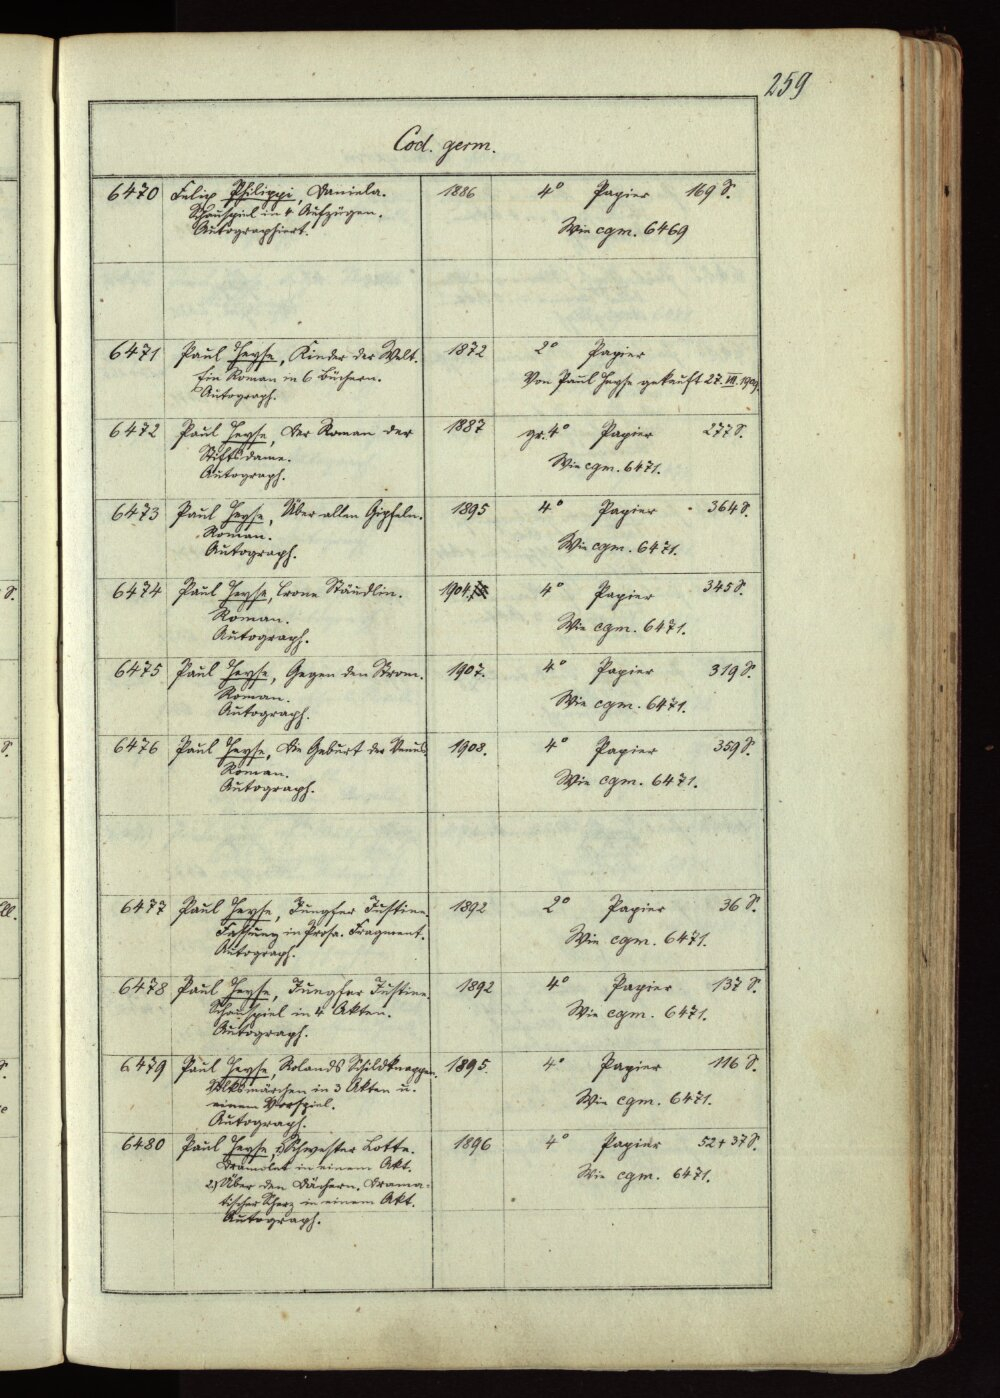 259
Cod. germ.
6470 Felix Philippi, Daniela. 1886 4° Papier 169 S.
Schauspiel in 4 Aufzügen. Wie cgm. 6469
Autographiert.
6471 Paul Heyse, Kinder der Welt. 1872 2° Papier
Ein Roman in 6 Büchern. Von Paul Heyse gekauft 27. VII. 1909.
Autograph.
6472 Paul Heyse, Der Roman der 1887 gr. 4° Papier 277 S.
Stiftsdame. Wie cgm. 6471.
Autograph.
6473 Paul Heyse, Über allen Gipfeln. 1895 4° Papier 364 S.
Roman. Wie cgm. 6471.
Autograph.
6474 Paul Heyse, Crone Stäudlin. 1904. 4° Papier 345 S.
Roman. Wie cgm. 6471.
Autograph.
6475 Paul Heyse, Gegen den Strom. 1907. 4° Papier 319 S.
Roman. Wie cgm. 6471.
Autograph.
6476 Paul Heyse, Die Geburt der Venus. 1908. 4° Papier 359 S.
Roman. Wie cgm. 6471.
Autograph.
6477 Paul Heyse, Jungfer Justine. 1892 2° Papier 36 S.
Fassung in Prosa. Fragment. Wie cgm. 6471.
Autograph.
6478 Paul Heyse, Jungfer Justine. 1892 4° Papier 137 S.
Schauspiel in 4 Akten. Wie cgm. 6471.
Autograph.
6479 Paul Heyse, Rolands Schildknappen. 1895. 4° Papier 116 S.
Volksmärchen in 3 Akten u. Wie cgm. 6471.
einem Vorspiel.
Autograph.
6480 Paul Heyse, 1) Schwester Lotte. 1896 4° Papier 52 + 37 S.
Dramolet in einem Akt. Wie cgm. 6471.
2) Über den Dächern. Drama-
tischer Scherz in einem Akt.
Autograph.